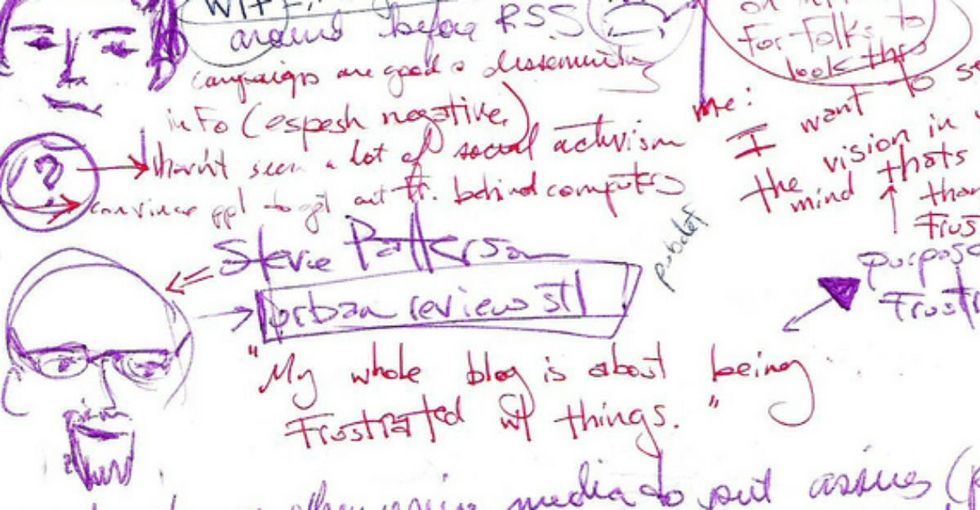 around before RSS
campaigns are good @ disseminating
info (espesh negative)
haven't seen a lot of social activism
convince ppl to get out fr. behind computers
Steve Patterson
urban review stl
"My whole blog is about being
Frustrated w/ things."
For Folks to
look thru
me:
I want to
the vision in
mind thats
purpose
media to put